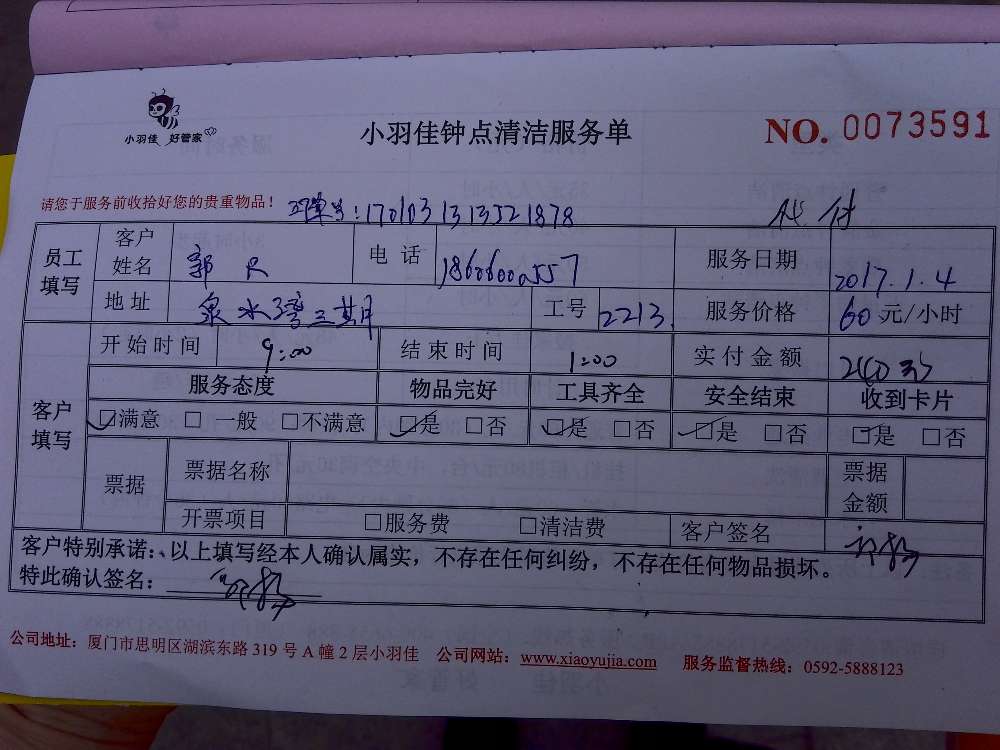 小羽佳 好管家
小羽佳钟点清洁服务单
NO. 0073591
请您于服务前收拾好您的贵重物品！ 订单号：170103131352187８
代付
员工填写 客户姓名 郭 电话 服务日期 2017.1.4
地址 泉水湾三期 工号 2213 服务价格 60 元/小时
客户填写 开始时间 9:00 结束时间 1:00 实付金额 240
服务态度 物品完好 工具齐全 安全结束 收到卡片
☑满意 □一般 □不满意 ☑是 □否 ☑是 □否 ☑是 □否 ☑是 □否
票据 票据名称 票据金额
开票项目 □服务费 □清洁费 客户签名
客户特别承诺：以上填写经本人确认属实，不存在任何纠纷，不存在任何物品损坏。
特此确认签名：
公司地址：厦门市思明区湖滨东路 319 号 A 幢 2 层小羽佳 公司网站：www.xiaoyujia.com 服务监督热线：0592-5888123